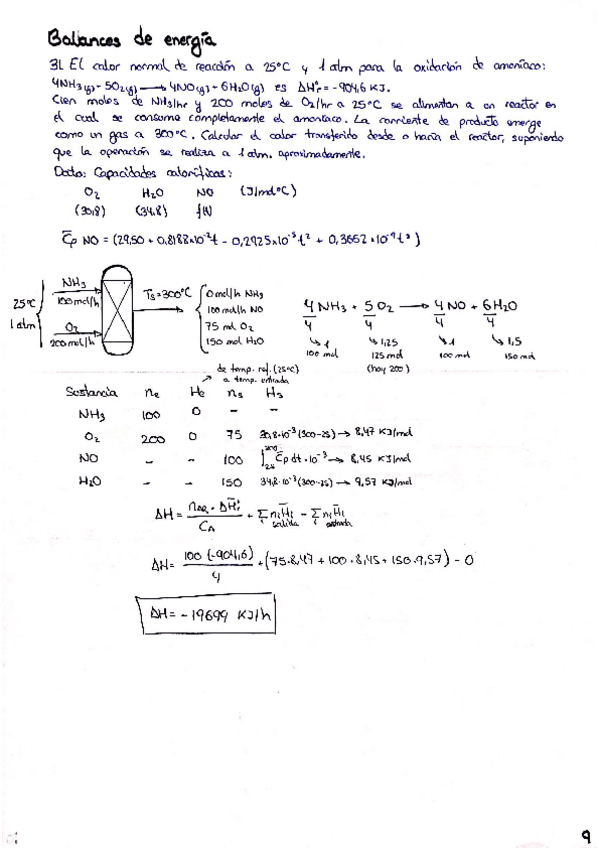 Balances de energía
31. El calor normal de reacción a 25ºC y 1 atm para la oxidación de amoníaco:
4NH3(g) + 5O2(g) → 4NO(g) + 6H2O(g) es ΔHºr = -904,6 KJ.
Cien moles de NH3/hr y 200 moles de O2/hr a 25ºC se alimentan a un reactor en
el cual se consume completamente el amoníaco. La corriente de producto emerge
como un gas a 300ºC. Calcular el calor transferido desde o hacia el reactor, suponiendo
que la operación se realiza a 1 atm. aproximadamente.
Dato: Capacidades caloríficas:
O2 H2O NO (J/molºC)
(30,8) (34,8) f(t)
C̅p NO = (29,50 + 0,8188×10⁻²t - 0,2925×10⁻⁵t² + 0,3652×10⁻⁹t³)
25ºC
1 atm
NH3
100mol/h
O2
200mol/h
Ts=300ºC
0 mol/h NH3
100 mol/h NO
75 mol O2
150 mol H2O
4/4 NH3 + 5/4 O2 → 4/4 NO + 6/4 H2O
↳ 1 ↳ 1,25 ↳ 1 ↳ 1,5
100 mol 125 mol 100 mol 150 mol
(hay 200)
de temp. ref. (25ºC)
a temp. entrada
Sustancia ne He ns Hs
NH3 100 0 - -
O2 200 0 75 30,8·10⁻³(300-25) → 8,47 KJ/mol
NO - - 100 ∫ C̅p dt·10⁻³ → 8,45 KJ/mol
H2O - - 150 34,8·10⁻³(300-25) → 9,57 KJ/mol
ΔH = + Σ niH̅i - Σ niH̅i
salida entrada
ΔH = 100(-904,6)/4 + (75·8,47 + 100·8,45 + 150·9,57) - 0
ΔH = -19699 KJ/h
9